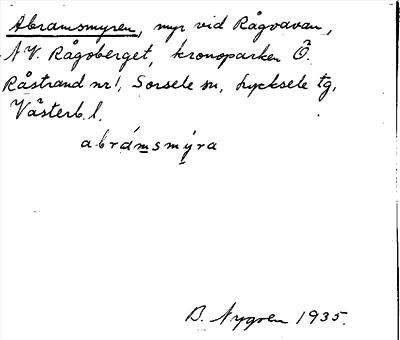 Abramsmyren, myr vid Rågvavan,
NV. Rågoberget, kronoparken Ö.
Råstrand nr 1, Sorsele sn, Lycksele tg,
Västerb. l.
abrámsmýra
B. Nygren 1935.